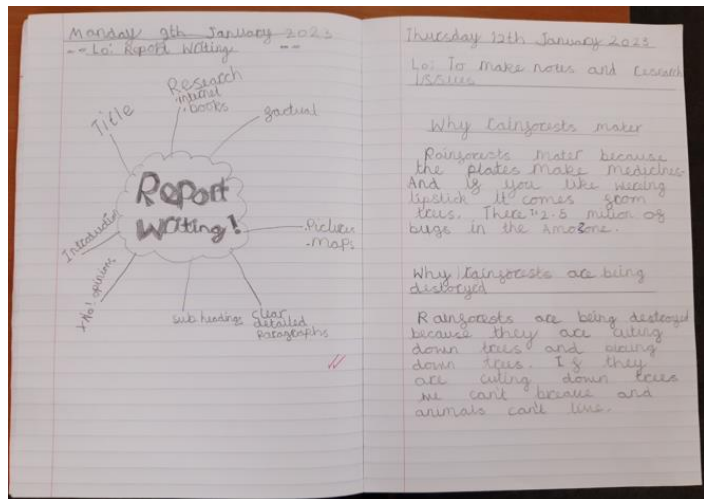 Monday 9th January 2023
-- Lo: Report Writing --
Title
Research
internet
. books
factual
Report
Writing!
Introduction
. Pictures
. Maps
*No! opinions
sub headings
clear
detailed
Paragraphs
Thursday 12th January 2023
Lo: To make notes and research
issues
Why Rainforests mater
Rainforests mater because
the plates make medicines
And if you like wearing
lipstick it comes from
trees. There 2.5 million of
bugs in the Amozone.
Why Rainforests are being
destoryed
Rainforests are being destroyed
because they are cuting
down trees and
down trees. If they
are cuting down trees
we can't breaue and
animals can't live.